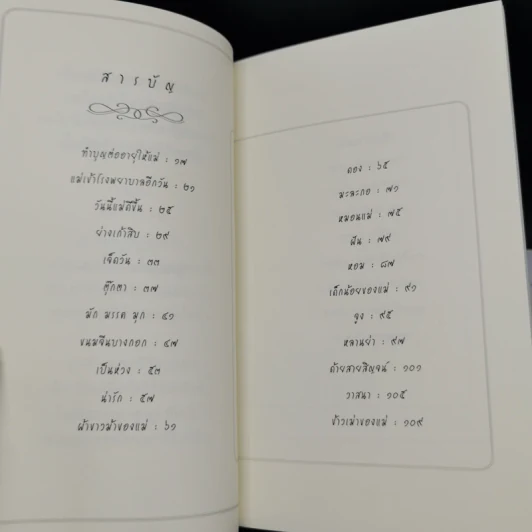 สารบัญ
ทำบุญต่ออายุให้แม่ : ๑๗
แม่เข้าโรงพยาบาลอีกวัน : ๒๑
วันนี้แม่ดีขึ้น : ๒๕
ย่างเก้าสิบ : ๒๙
เจ็ดวัน : ๓๓
ตุ๊กตา : ๓๗
มัก มรรค มุก : ๔๑
ขนมจีนบางกอก : ๔๗
เป็นห่วง : ๕๓
น่ารัก : ๕๗
ผ้าขาวม้าของแม่ : ๖๑
ดอง : ๖๕
มะละกอ : ๗๑
หมอนแม่ : ๗๕
ฝัน : ๗๙
หอม : ๘๗
เด็กน้อยของแม่ : ๙๑
จูง : ๙๕
หลานย่า : ๙๗
ด้ายสายสิญจน์ : ๑๐๑
วาสนา : ๑๐๕
ข้าวเม่าของแม่ : ๑๐๙